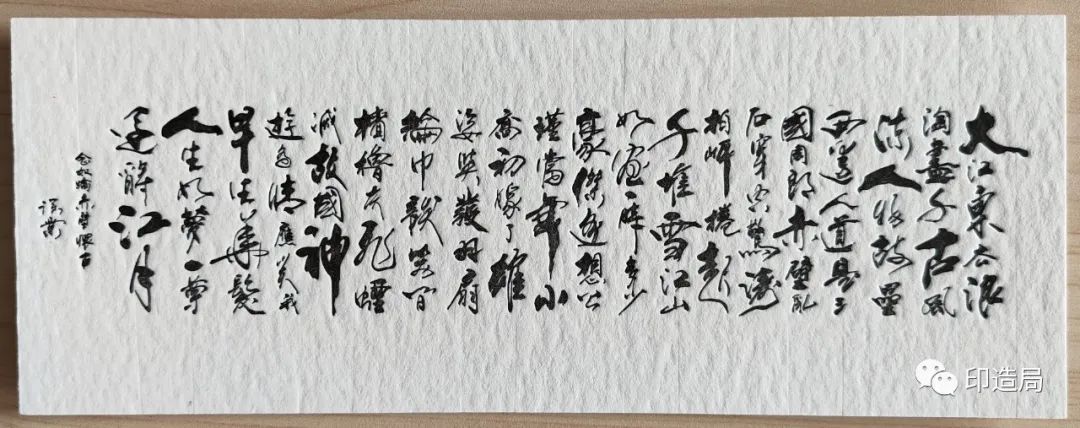 大江東去浪
淘盡千古風
流人物故壘
西邊人道是三
國周郎赤壁亂
石穿空驚濤
拍岸捲起
千堆雪江山
如畫一時多少
豪傑遙想公
瑾當年小
喬初嫁了雄
姿英發羽扇
綸巾談笑間
檣櫓灰飛煙
滅故國神
遊多情應笑我
早生華髮
人生如夢一尊
還酹江月
念奴嬌赤壁懷古
印造局